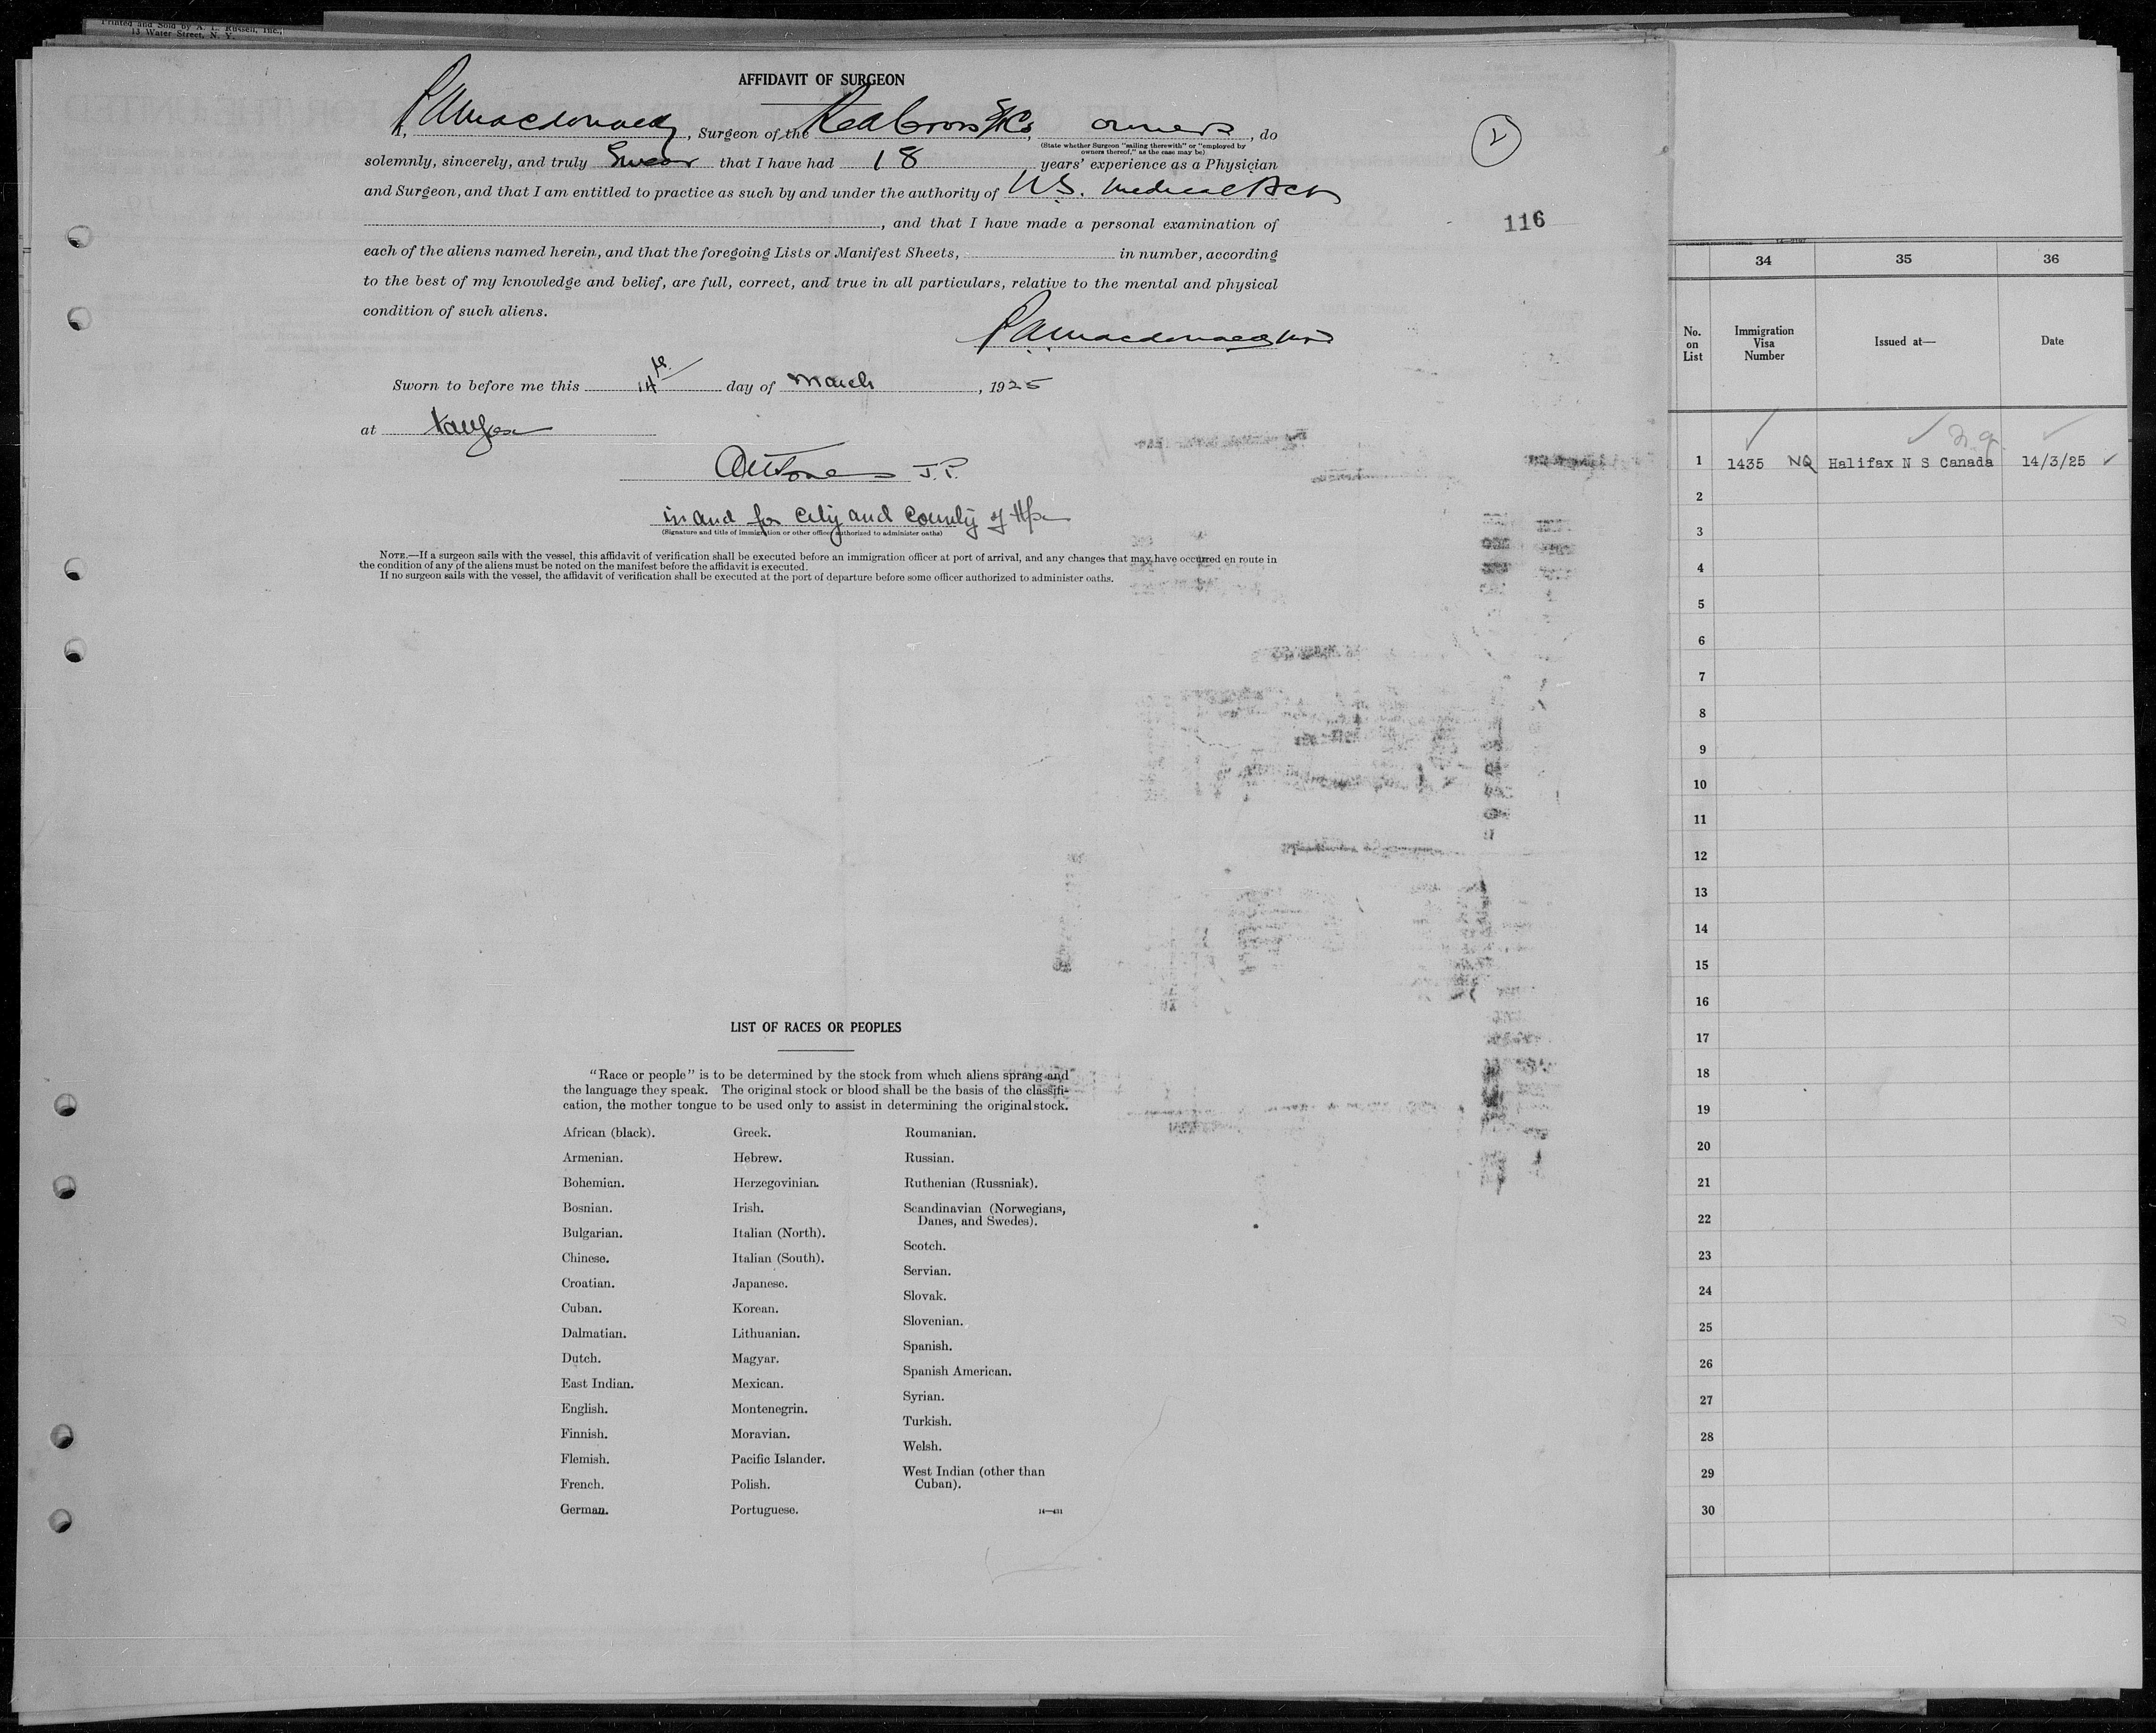 Printed and Sold by A. L. Russell, Inc.,
13 Water Street, N. Y.
AFFIDAVIT OF SURGEON
I, PA Macdonald, Surgeon of the Red Cross SS Co, owners, do
(State whether Surgeon "sailing therewith" or "employed by
owners thereof," as the case may be)
solemnly, sincerely, and truly Swear that I have had 18 years' experience as a Physician
and Surgeon, and that I am entitled to practice as such by and under the authority of N.S. Medical Act
, and that I have made a personal examination of
each of the aliens named herein, and that the foregoing Lists or Manifest Sheets, in number, according
to the best of my knowledge and belief, are full, correct, and true in all particulars, relative to the mental and physical
condition of such aliens.
PA Macdonald MD
Sworn to before me this 14th day of March, 1925
at Halifax
J.P.
in and for City and County of Hfx
(Signature and title of immigration or other officer authorized to administer oaths)
NOTE.—If a surgeon sails with the vessel, this affidavit of verification shall be executed before an immigration officer at port of arrival, and any changes that may have occurred en route in
the condition of any of the aliens must be noted on the manifest before the affidavit is executed.
If no surgeon sails with the vessel, the affidavit of verification shall be executed at the port of departure before some officer authorized to administer oaths.
116
LIST OF RACES OR PEOPLES
"Race or people" is to be determined by the stock from which aliens sprang and
the language they speak. The original stock or blood shall be the basis of the classifi-
cation, the mother tongue to be used only to assist in determining the original stock.
African (black).
Armenian.
Bohemian.
Bosnian.
Bulgarian.
Chinese.
Croatian.
Cuban.
Dalmatian.
Dutch.
East Indian.
English.
Finnish.
Flemish.
French.
German.
Greek.
Hebrew.
Herzegovinian.
Irish.
Italian (North).
Italian (South).
Japanese.
Korean.
Lithuanian.
Magyar.
Mexican.
Montenegrin.
Moravian.
Pacific Islander.
Polish.
Portuguese.
Roumanian.
Russian.
Ruthenian (Russniak).
Scandinavian (Norwegians,
Danes, and Swedes).
Scotch.
Servian.
Slovak.
Slovenian.
Spanish.
Spanish American.
Syrian.
Turkish.
Welsh.
West Indian (other than
Cuban).
34 35 36
No. on List
Immigration Visa Number
Issued at—
Date
n q
1 1435 NQ Halifax N S Canada 14/3/25
2
3
4
5
6
7
8
9
10
11
12
13
14
15
16
17
18
19
20
21
22
23
24
25
26
27
28
29
30